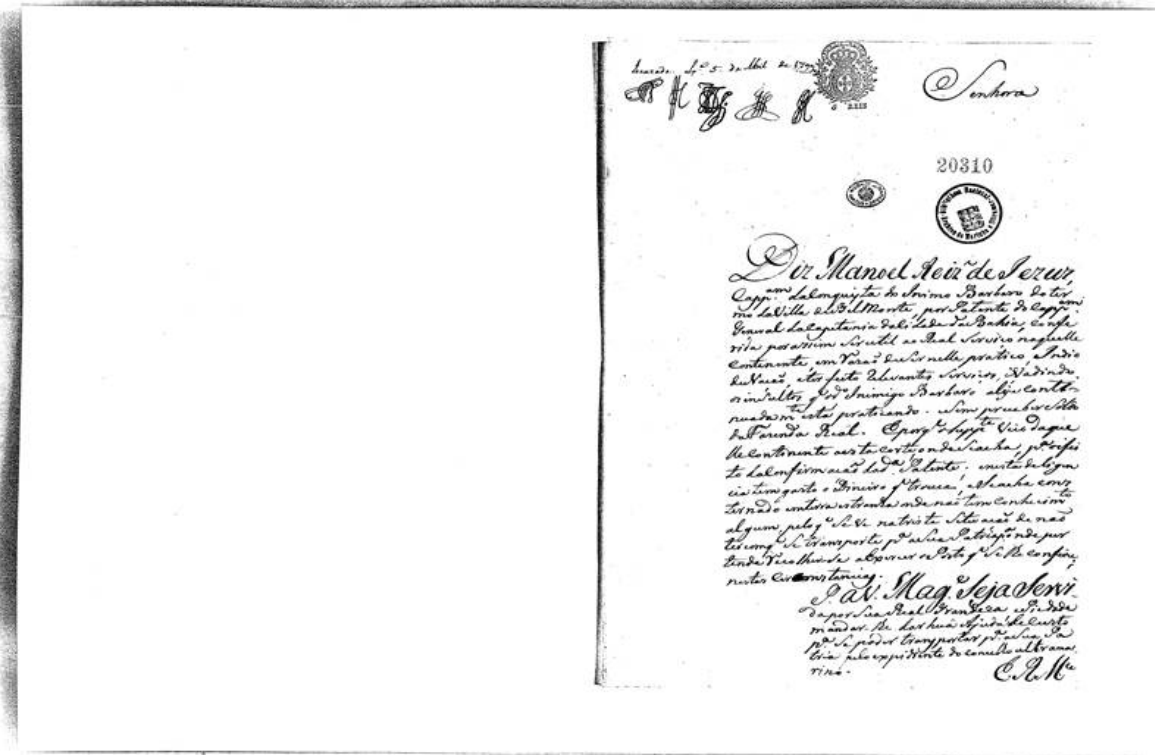 Escusada. Lx.ª 5 de Abril de
Senhora
20310
Diz Manoel de Jezuz,
Capp.am da Conquista do Inimo Barbaro do ter
mo da Villa de Bel Monte, por Patente do Capp.am
General da Capetania da Cidade da Bahia, confe
rida por assim ser util ao Real Serviço naquelle
Continente, em Razaõ de ser nelle prático, Indio
de Nacaõ, e ter feito Relevantes Serviços,
os insultos q' o d.º Inimigo Barbaro alije conti-
nuada m.te está praticando. Sem preceber Soldo
da Fazenda Real. E porq' o Supp.te Veio daque
lle continente a esta corte, onde se acha, p.ª o efei
to da confirmacaõ da d.ª Patente; e nesta deligen
cia tem gasto o Dinheiro q' trouce, e se acha cons
ternado em terra estranha onde naõ tem conhecim.to
algum, pelo q' se Ve na triste Situacaõ de naõ
ter com q' se transporte p.ª a sua Patria, p.ª onde per
tende Recolherse a Exercer o Posto q' se lhe confirio,
nestas Circomstancias.
P. a V. Mag.e Seja Servi-
da por Sua Real Grandeza e Piedade
mandar-lhe dar huã Ajuda de Custo
p.ª se poder transportar p.ª a sua Pa
tria pelo expidiente do concelho ultrama
rino.
E. R. M.ce